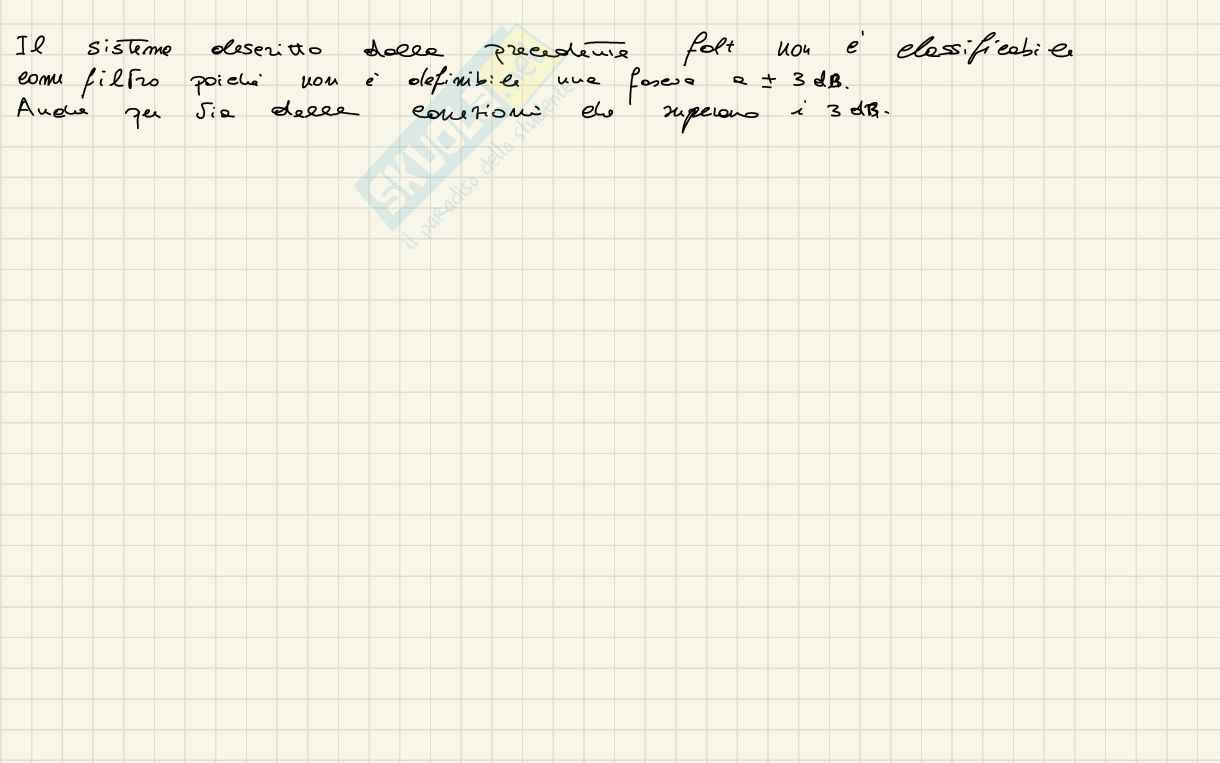 Il sistema descritto dalla precedente fdt non è classificabile
come filtro poiché non è definibile una fascia a ± 3 dB.
Anche per via delle correzioni che superano i 3 dB.
SKUOLA.net
il paradiso dello studente